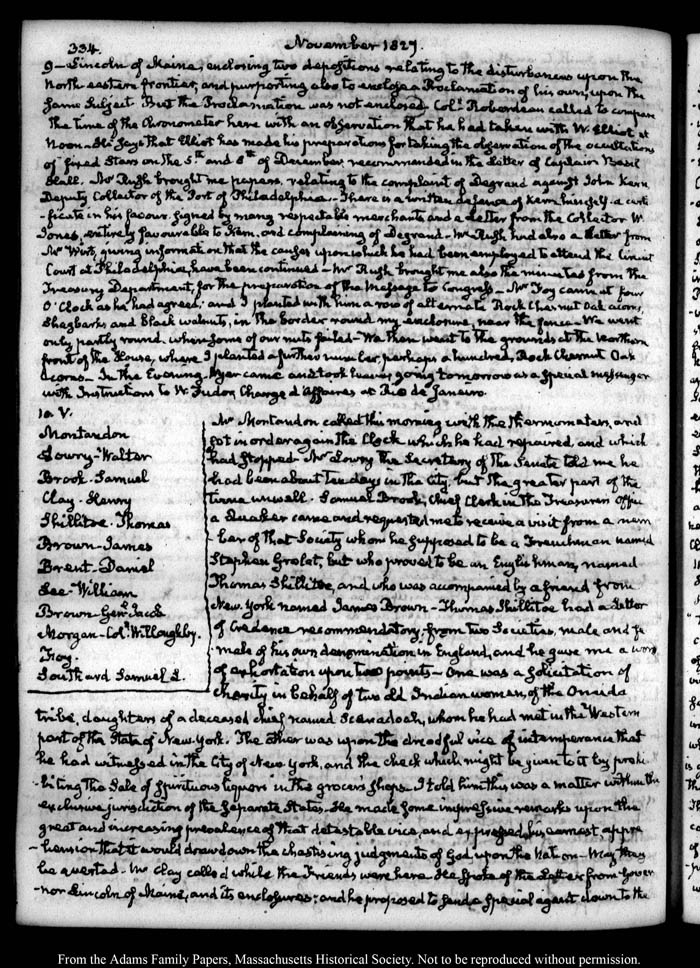 334.
November 1827.
9 – Lincoln of Maine, enclosing two depositions relating to the disturbances upon the
North eastern frontier, and purporting also to enclose a Proclamation of his own, upon the
same Subject. But the Proclamation was not enclosed. Coll. Roberdeau called to compare
the time of the Chronometer here with an observation that he had taken with W. Elliot at
Noon. He says that Elliot has made his preparations for taking the observation of the occultations
of fixed Stars on the 5th and 6th of December recommended in the Letter of Captain Basil
Hall. Mr Rush brought me papers, relating to the complaint of Degrand against John Kern
Deputy Collector of the Port of Philadelphia. There is a written defence of Kern himself a certi
-ficate in his favour signed by many respectable merchants and a Letter from the Collector W.
Jones, entirely favourable to Kern, and complaining of Degrand. Mr Rush had also a Letter from
Mr Wirt, giving information that the causes upon which he had been employed to attend the Circuit
Court at Philadelphia, have been continued – Mr Rush brought me also the minutes from the
Treasury Department, for the preparation of the Message to Congress – Mr Foy came at four
O'Clock as he had agreed; and I planted with him a row of alternate Rock Chesnut Oak acorns,
Shagbarks and black walnuts, in the border round my enclosure, near the fence. We went
only partly round, when some of our nuts failed – We then went to the grounds at the Northern
front of the House, where I planted a further number, perhaps a hundred, Rock Chesnut Oak
Acorns – In the Evening came and took leave, going tomorrow as a special messenger
with Instructions to W. Tudor Charge d'Affaires at Rio de Janeiro.
10. V.
Montandon
Lowry – Walter
Brook – Samuel
Clay – Henry
Shillitoe – Thomas
Brown – James
Brent – Daniel
Lee – William
Brown – Genl. Jacob
Morgan – Coll. Willoughby.
Foy.
Southard Samuel L.
Mr Montandon called this morning with the thermometers, and
put in order again the Clock which he had repaired, and which
had stopped – Mr Lowry the Secretary of the Senate told me he
had been about ten days in the City, but the greater part of the
time unwell. Samuel Brook, Chief Clerk in the Treasurers Office
a Quaker came and requested me to receive a visit from a mem
-ber of that Society whom he supposed to be a Frenchman named
Stephen Grelet, but who proved to be an Englishman, named
Thomas Shillitoe, and who was accompanied by a friend from
New York named James Brown – Thomas Shillitoe had a Letter
of Credence recommendatory, from two Societies, male and fe
male of his own denomination in England, and he gave me a word
of exhortation upon two points – One was a solicitation of
Charity in behalf of two old Indian women, of the Oneida
tribe, daughters of a deceased chief named Scanadoah, whom he had met in the Western
part of the State of New-York. The other was upon the dreadful vice of intemperance that
he had witnessed in the City of New York, and the check which might be given to it by prohi
-biting the Sale of Spirituous liquors in the grocer's shops. I told him this was a matter within the
exclusive jurisdiction of the separate States. He made some impressive remarks upon the
great and increasing prevalence of that detestable vice, and expressed his earnest appre
-hension that it would draw down the chastising judgments of God upon the Nation – May they
be averted. Mr Clay called while the Friends were here. He spoke of the Letter from Gover
-nor Lincoln of Maine, and its enclosures; and he proposed to send a special agent down to the
From the Adams Family Papers, Massachusetts Historical Society. Not to be reproduced without permission.